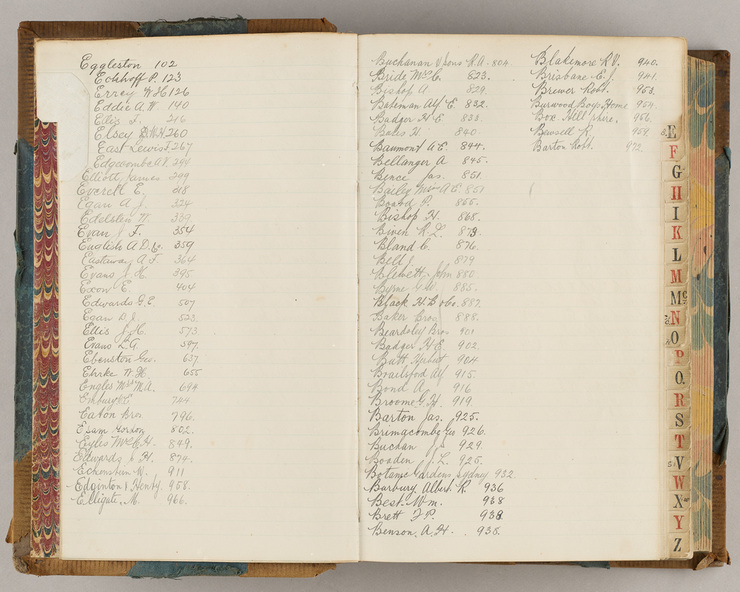 Eggleston 102
Eckhoff P. 123
Errey W H 126
Eddie A. W 140
Eliz T. 216
Elsey 260
East Lewis J 267
Edgecombe 294
Elliott James 299
Everett E. 318
Egan A J. 324
Edelsten 339
Evan J F. 354
English A D. 359
Eastaway A F. 364
Evans J H. 395
Exon E 404
Edwards G. E. 507
Egan D J. 523
Ellis J. H. 573
Evans L A. 597
Ebenston Geo. 637
Ehrke W H 655
Engles Mrs M. A. 694
Emburg E. 724
Eaton Bros 796.
Elsam Horson 802.
Eyles Mrs C. H. 849.
Edwards J H. 874.
Echonstein W. 911
Edginton & Henty. 958.
Elligate, M. 966.
Buchanan & Sons R. A. 804
Bride Mrs C. 823.
Bishop A 829.
Bateman Alf E. 832.
Badger H E 833.
Bates H 840.
Baumont A. E. 844.
Bellanger A 845.
Bence Jas. 851.
Bailey Mrs A. E. 851
Boxod P. 855.
Bishop H. 868.
Biven R. L. 873.
Bland C. 876.
Bell J 879
Blewett John 880.
Byrne G. W. 885.
Black H. & Sons. 887.
Baker Bros 888.
Beardsley Bros 901
Badger H. E. 902
Butt 904.
Brailsford Alf 915.
Bond A. 916
Broome G. H. 919
Barton Jas. 925.
Brimacombe Geo 926.
Buchan 929.
Bowden J. L. 925.
Botanic Gardens Sydney 932.
Barbury Albert R. 936
Best. Wm. 938
Brett J P. 938.
Benson, A. H. 938.
Blakemore R V. 940.
Brisbane E. J. 941.
Brewer Robt. 953.
Burwood Boys Home 954.
Box Hill Shire. 956.
Bussell R. 958.
Barton Robt. 972.
E
F
G
H
I
K
L
M
Mc
N
O
P
Q.
R
S
T
V
W
X
Y
Z